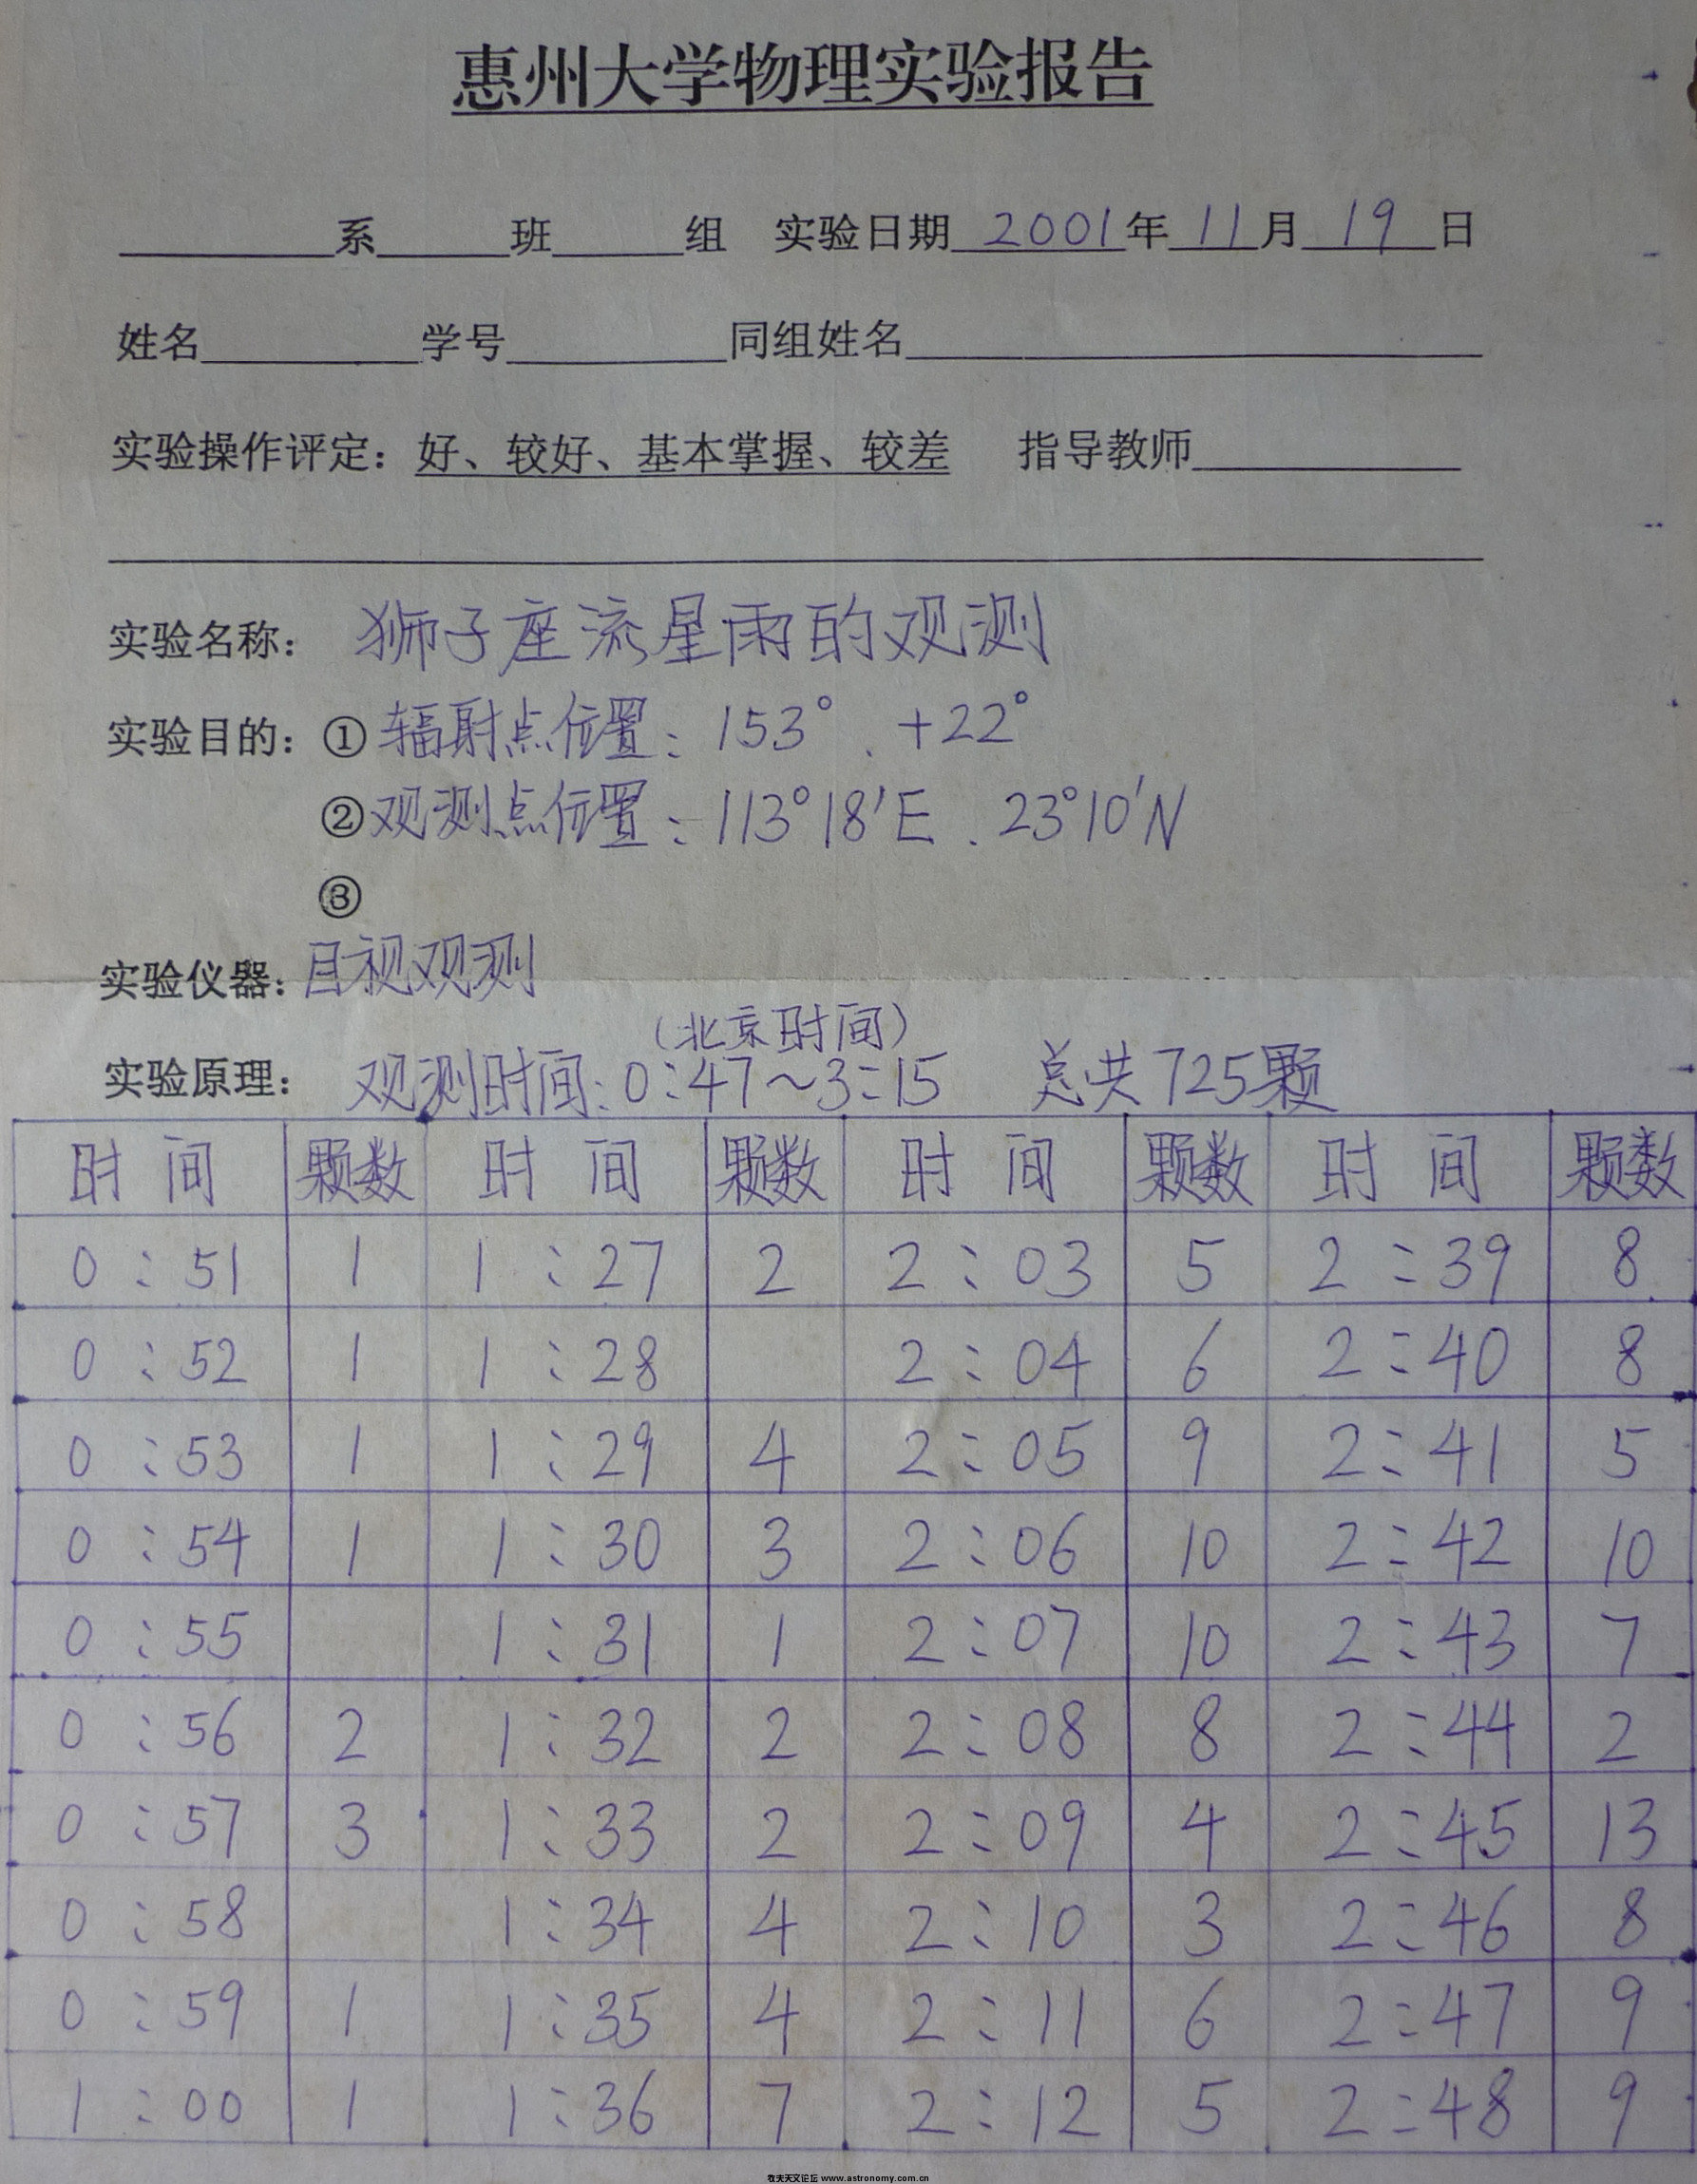 惠州大学物理实验报告
系 班 组 实验日期 2001 年 11 月 19 日
姓名 学号 同组姓名
实验操作评定：好、较好、基本掌握、较差 指导教师
实验名称： 狮子座流星雨的观测
实验目的：① 辐射点位置：153°、+22°
②观测点位置：113°18′E、23°10′N
③
实验仪器：目视观测
（北京时间）
实验原理： 观测时间：0:47～3:15 总共725颗
时间 颗数 时间 颗数 时间 颗数 时间 颗数
0:51 1 1:27 2 2:03 5 2:39 8
0:52 1 1:28 2:04 6 2:40 8
0:53 1 1:29 4 2:05 9 2:41 5
0:54 1 1:30 3 2:06 10 2:42 10
0:55 1:31 1 2:07 10 2:43 7
0:56 2 1:32 2 2:08 8 2:44 2
0:57 3 1:33 2 2:09 4 2:45 13
0:58 1:34 4 2:10 3 2:46 8
0:59 1 1:35 4 2:11 6 2:47 9
1:00 1 1:36 7 2:12 5 2:48 9
牧夫天文论坛 www.astronomy.com.cn